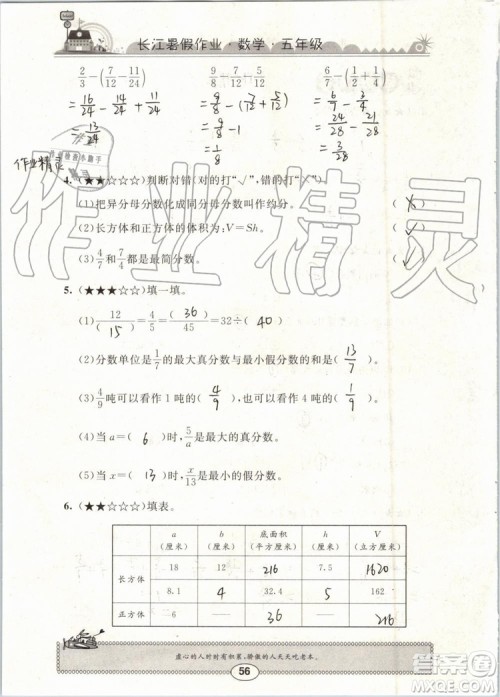 长江暑假作业·数学·五年级
2/3-(7/12-11/24) 9/8-7/12-5/12 6/7-(1/2+1/4)
=16/24-14/24+11/24 =9/8-(7/12+5/12) =6/7-3/4
=13/24 =9/8-1 =24/28-21/28
=1/8 =3/28
作业精灵
4.(★★☆☆☆)判断对错(对的打“√”,错的打“×”)。
(1)把异分母分数化成同分母分数叫作约分。 (×)
(2)长方体和正方体的体积为:V=Sh。 (✓)
(3)4/7和7/4都是最简分数。 (✓)
5.(★★★☆☆)填一填。
(1)12/(15)=4/5=(36)/45=32÷(40)
(2)分数单位是1/7的最大真分数与最小假分数的和是(13/7)。
(3)4/9吨可以看作1吨的(4/9),也可以看作4吨的(1/9)。
(4)当a=(6)时,5/a是最大的真分数。
(5)当x=(13)时,x/13是最小的假分数。
6.(★★☆☆☆)填表。
a(厘米) b(厘米) 底面积(平方厘米) h(厘米) V(立方厘米)
长方体 18 12 216 7.5 1620
8.1 4 32.4 5 162
正方体 6 — 36 — 216
虚心的人时时有积累,骄傲的人天天吃老本。
56
作业精灵
答案圈
MXQE.COM